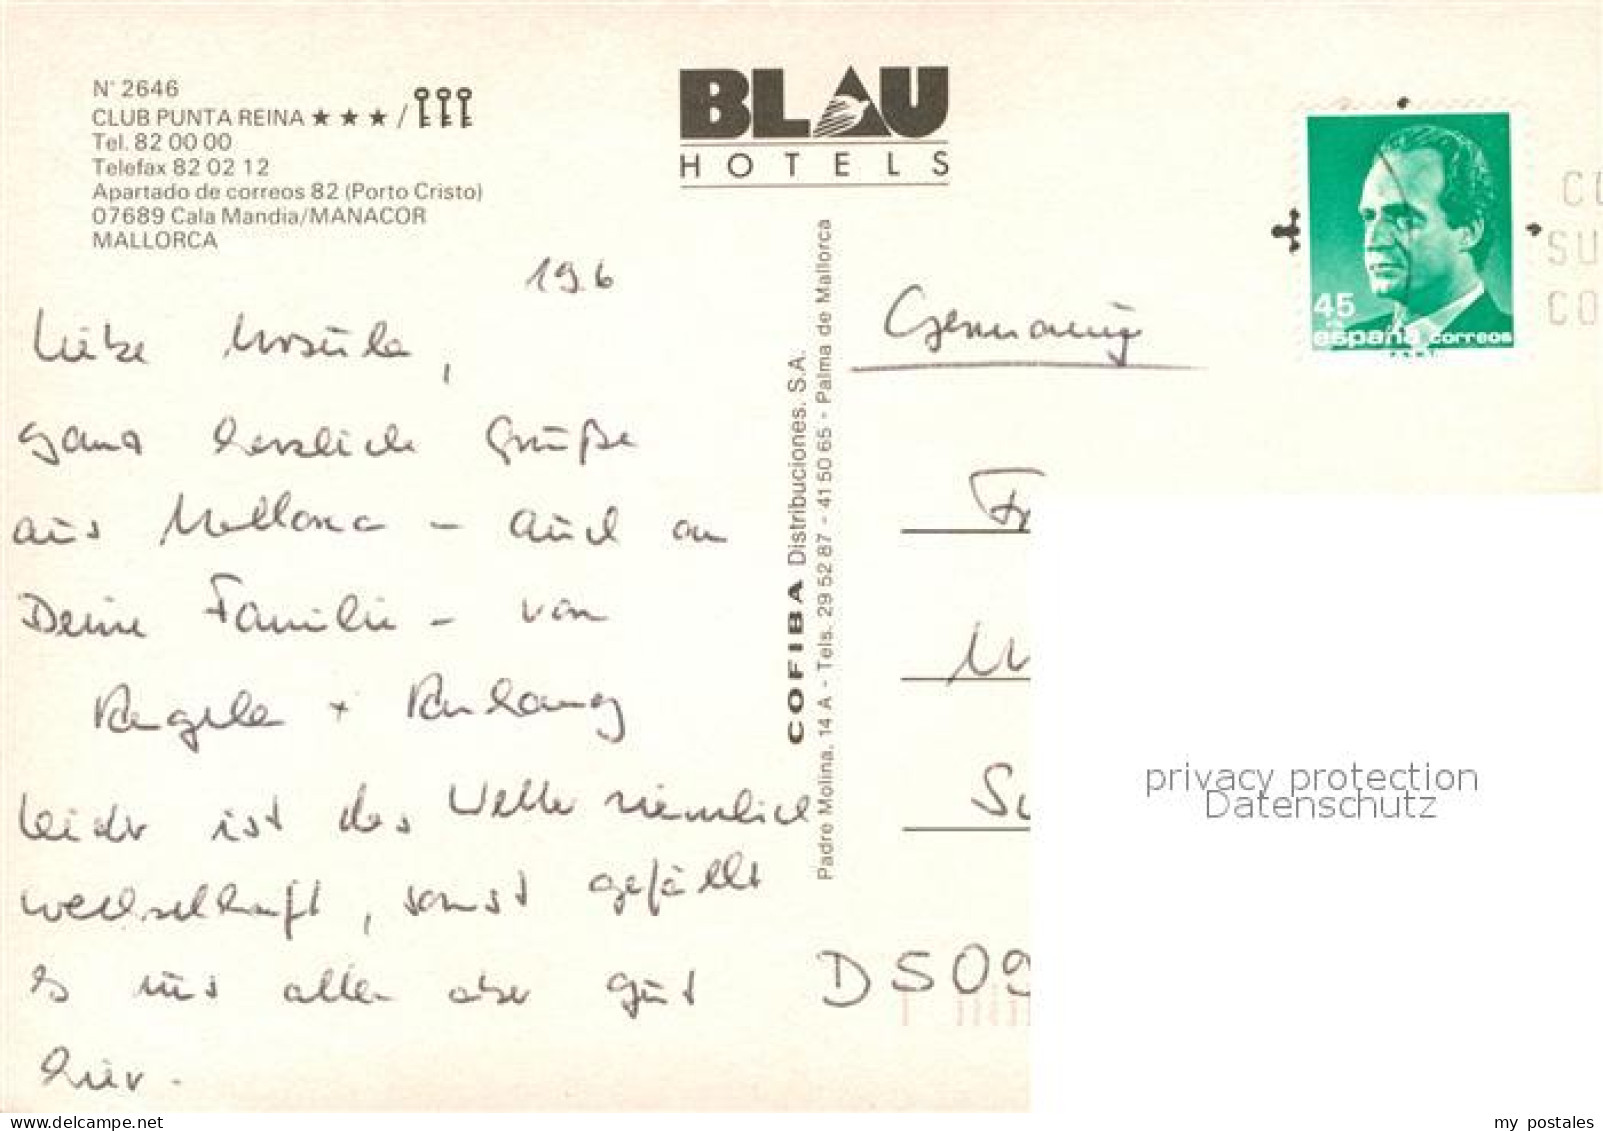 N° 2646
CLUB PUNTA REINA ★ ★ ★ /
Tel. 82 00 00
Telefax 82 02 12
Apartado de correos 82 (Porto Cristo)
07689 Cala Mandia/MANACOR
MALLORCA
BLAU
HOTELS
19.6
Liebe Ursula,
ganz herzliche Grüße
aus Mallorca - auch an
Deine Familie - von
Angela +
Leider ist das Wetter ziemlich
wechselhaft, sonst gefällt
es uns allen aber gut
hier.
COFIBA Distribuciones. S.A.
Padre Molina, 14 A - Tels. 29 52 87 - 41 50 65 - Palma de Mallorca
Germany
45
españa correos
CO
Fr
D 509
privacy protection
Datenschutz
www.delcampe.net
my postales